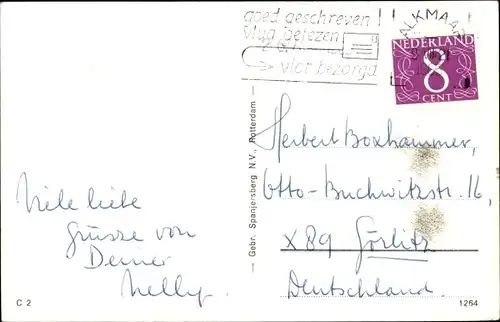 goed geschreven
vlug gelezen
vlot bezorgd
ALKMAAR
NEDERLAND
8
CENT
Gebr. Spanjersberg N.V., Rotterdam
Herbert Boxhammer,
Otto-Buchwitzstr. 16,
X 89 Görlitz
Deutschland.
Viele liebe
Grüsse von
Deiner
Nelly.
C 2
1264